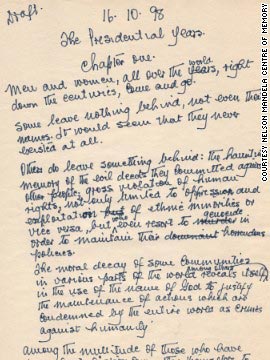 Draft.
16. 10. 98
The Presidential Years.
Chapter one.
Men and women, all over the world, right
down the centuries, come and go.
Some leave nothing behind, not even their
names. It would seem that they never
existed at all.
Others do leave something behind: the haunting
memory of the evil deeds they committed against
other people; gross violation of human
rights, not only limited to oppression and
exploitation of ethnic minorities or
vice versa, but even resort to genocide in
order to maintain their horrendous
policies.
The moral decay of some communities
in various parts of the world reveals itself among others
in the use of the name of God to justify
the maintenance of actions which are
condemned by the entire world as crimes
against humanity.
Among the multitude of those who have
COURTESY NELSON MANDELA CENTRE OF MEMORY